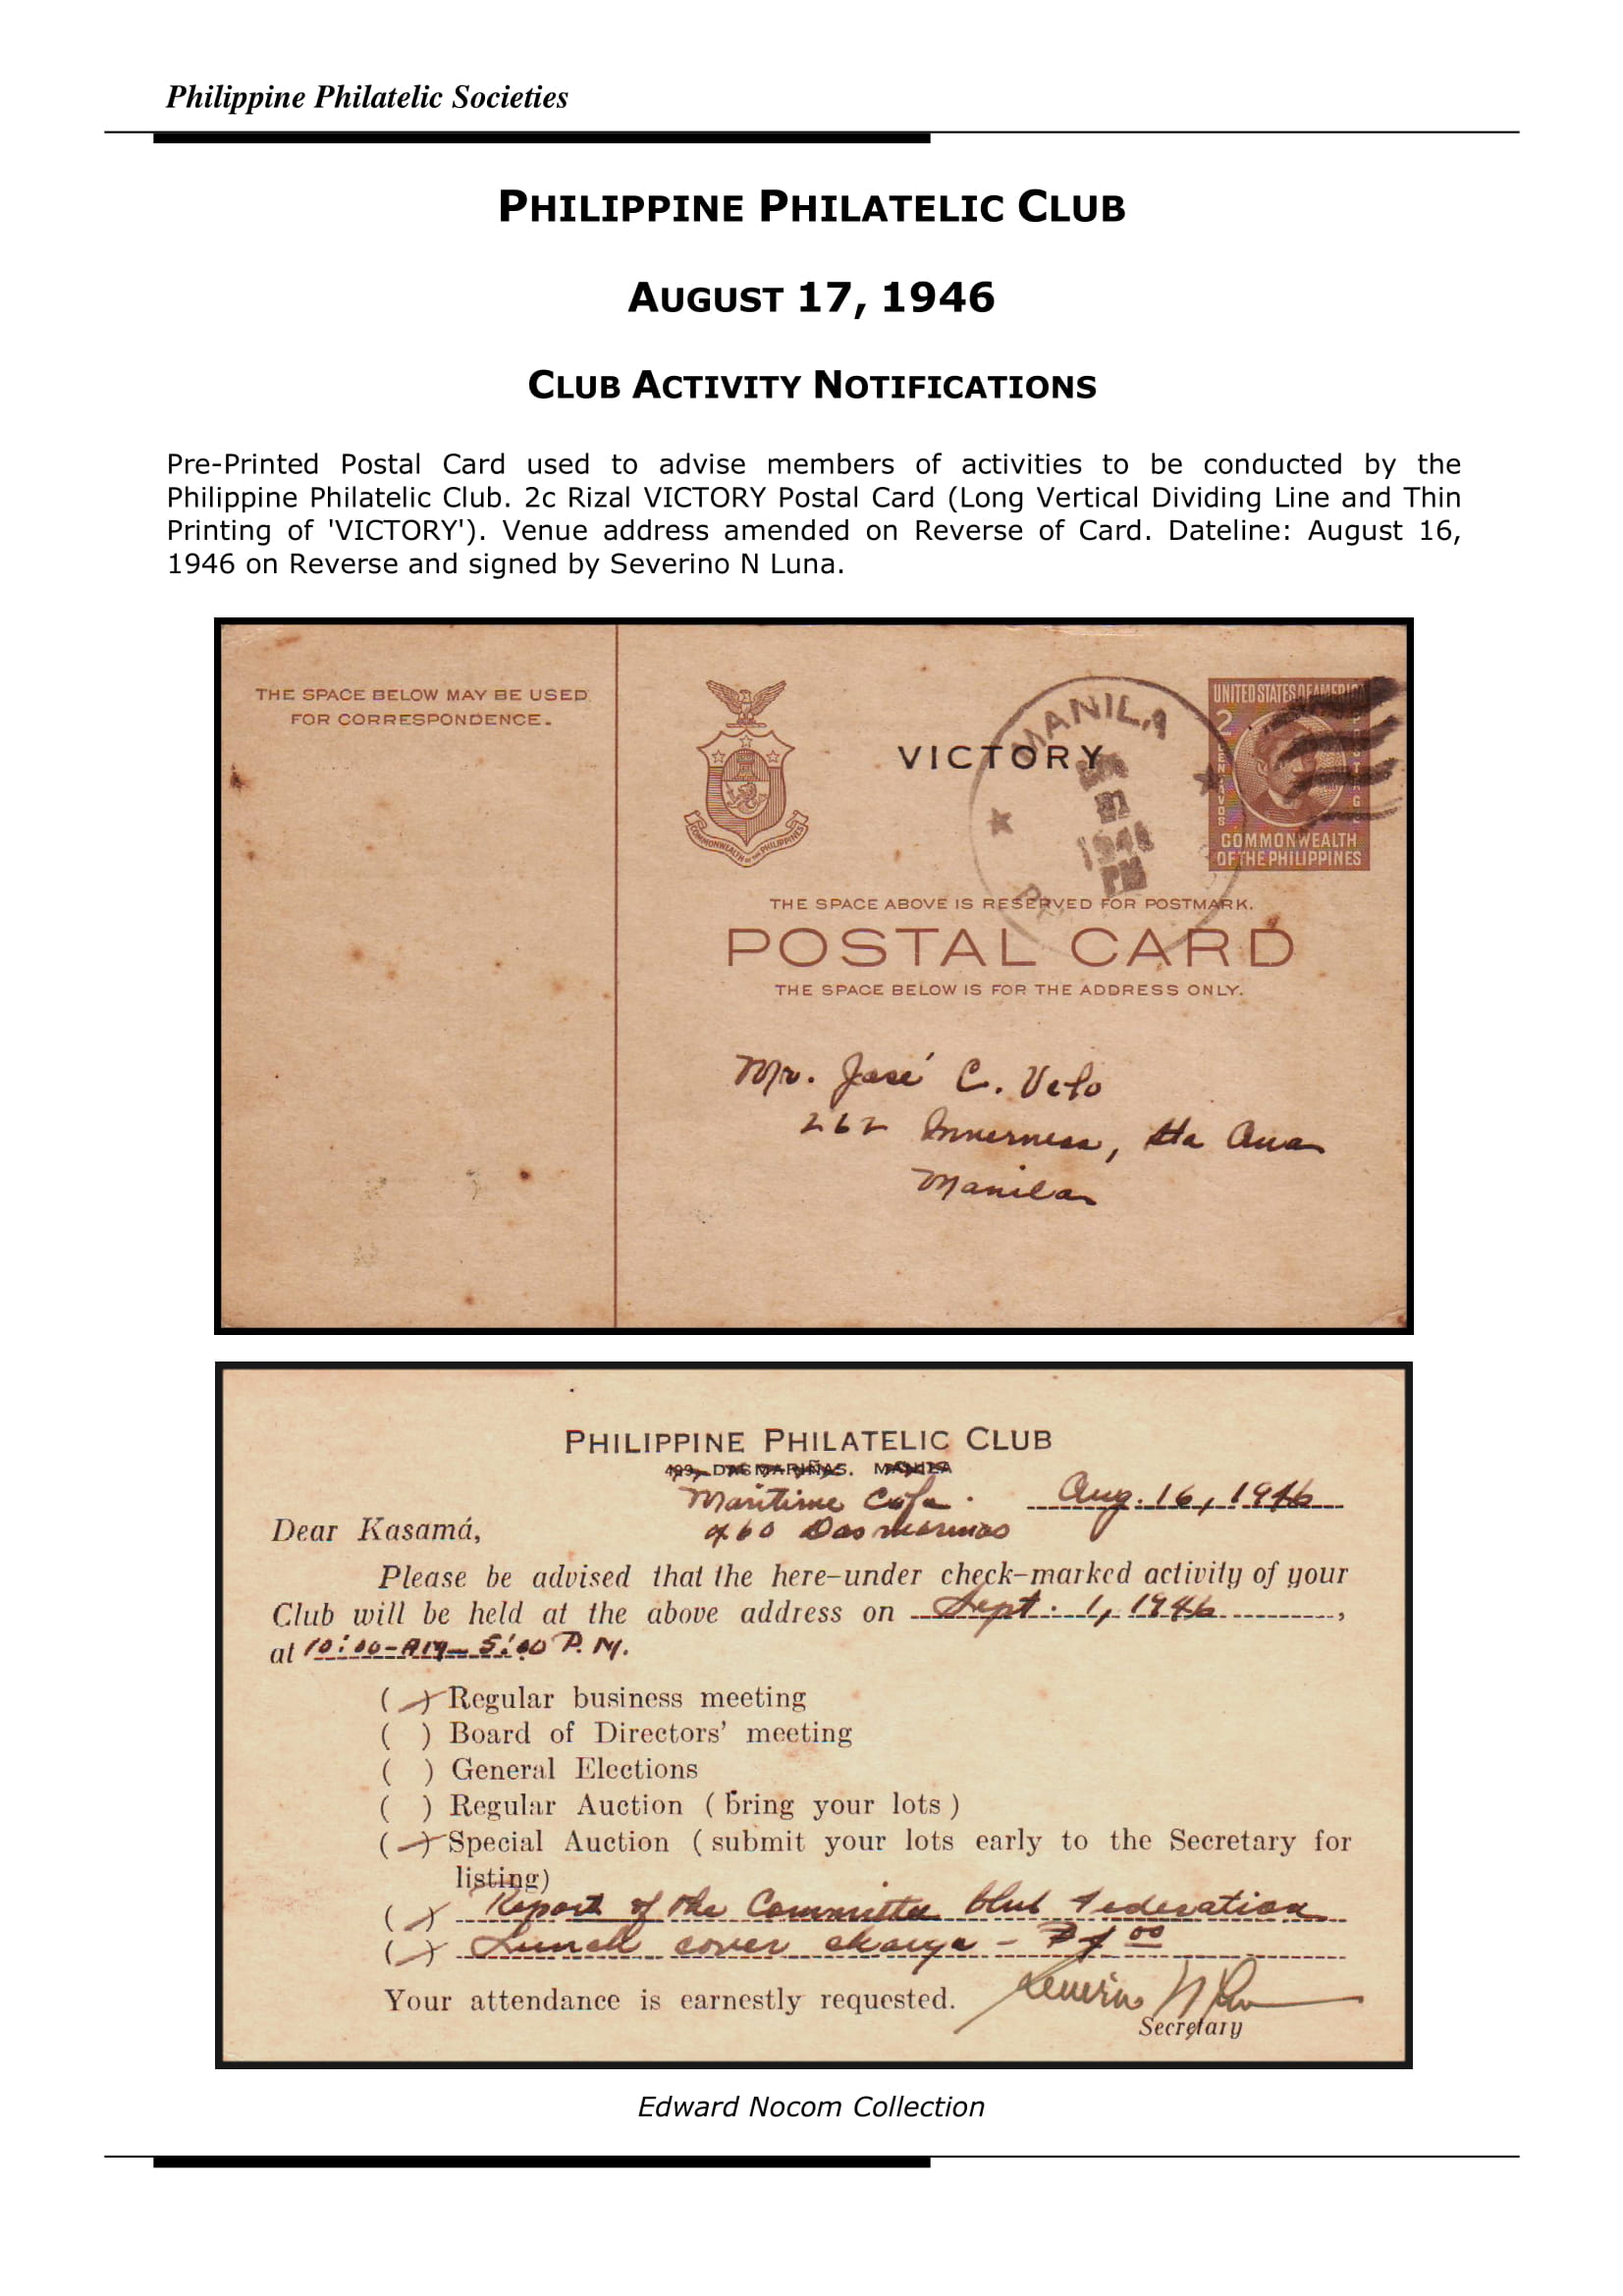 Philippine Philatelic Societies
PHILIPPINE PHILATELIC CLUB
AUGUST 17, 1946
CLUB ACTIVITY NOTIFICATIONS
Pre-Printed Postal Card used to advise members of activities to be conducted by the
Philippine Philatelic Club. 2c Rizal VICTORY Postal Card (Long Vertical Dividing Line and Thin
Printing of 'VICTORY'). Venue address amended on Reverse of Card. Dateline: August 16,
1946 on Reverse and signed by Severino N Luna.
THE SPACE BELOW MAY BE USED
FOR CORRESPONDENCE.
COMMONWEALTH OF THE PHILIPPINES
VICTORY
MANILA
1946
PM
UNITED STATES OF AMERICA
2
CENTAVOS
POSTAGE
COMMONWEALTH
OF THE PHILIPPINES
THE SPACE ABOVE IS RESERVED FOR POSTMARK.
POSTAL CARD
THE SPACE BELOW IS FOR THE ADDRESS ONLY.
Mr. José C. Velo
262 Inverness, Sta Ana
Manila
PHILIPPINE PHILATELIC CLUB
DASMARIÑAS. MANILA
Maritime Aug. 16, 1946
Dear Kasamá, 460 Dasmarinas
Please be advised that the here-under check-marked activity of your
Club will be held at the above address on Sept. 1, 1946,
at 10:00-AM- 5:00 P.M.
( ) Regular business meeting
( ) Board of Directors' meeting
( ) General Elections
( ) Regular Auction ( bring your lots )
( ) Special Auction ( submit your lots early to the Secretary for
listing)
( ) Report of the Committee Club Federation
( ) Lunch cover charge - ₱1 00
Your attendance is earnestly requested. Severino N Luna
Secretary
Edward Nocom Collection